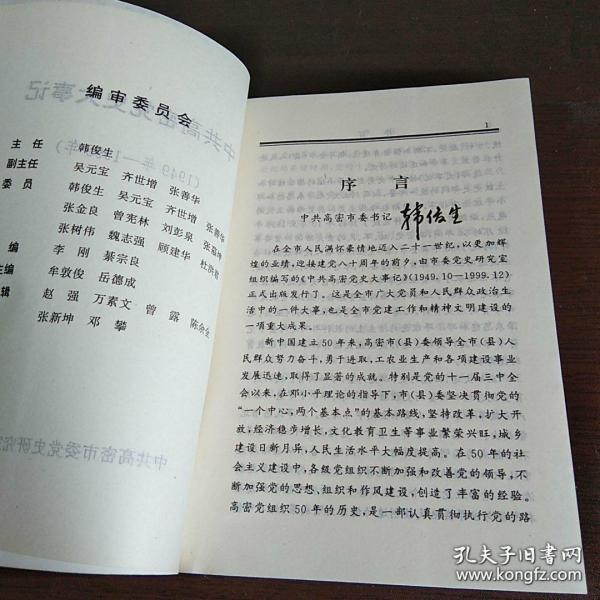 编审委员会
主 任 韩俊生
副主任 吴元宝 齐世增 张善华
委 员 韩俊生 吴元宝 齐世增 张善华
张金良 曾宪林 刘彭泉 张嘉坤
张树伟 魏志强 顾建华 杜洪君
编 李 刚 綦宗良
主编 牟敦俊 岳德成
辑 赵 强 万素文 曾 露 陈余全
张新坤 邓 攀
1
序 言
中共高密市委书记 韩俊生
在全市人民满怀豪情地迈入二十一世纪,以更加辉
煌的业绩,迎接建党八十周年的前夕,由市委党史研究室
组织编写的《中共高密党史大事记》(1949.10-1999.12)
正式出版发行了。这是全市广大党员和人民群众政治生
活中的一件大事,也是全市党建工作和精神文明建设的
一项重大成果。
新中国建立50年来,高密市(县)委领导全市(县)人
民群众努力奋斗,勇于进取,工农业生产和各项建设事业
发展迅速,取得了显著的成就。特别是党的十一届三中全
会以来,在邓小平理论的指导下,市(县)委坚决贯彻党的
“一个中心,两个基本点”的基本路线,坚持改革,扩大开
放,经济稳步增长,文化教育卫生等事业繁荣兴旺,城乡
建设日新月异,人民生活水平大幅度提高。在50年的社
会主义建设中,各级党组织不断加强和改善党的领导,不
断加强党的思想、组织和作风建设,创造了丰富的经验。
高密党组织50年的历史,是一部认真贯彻执行党的路
孔夫子旧书网
www.kongfz.com